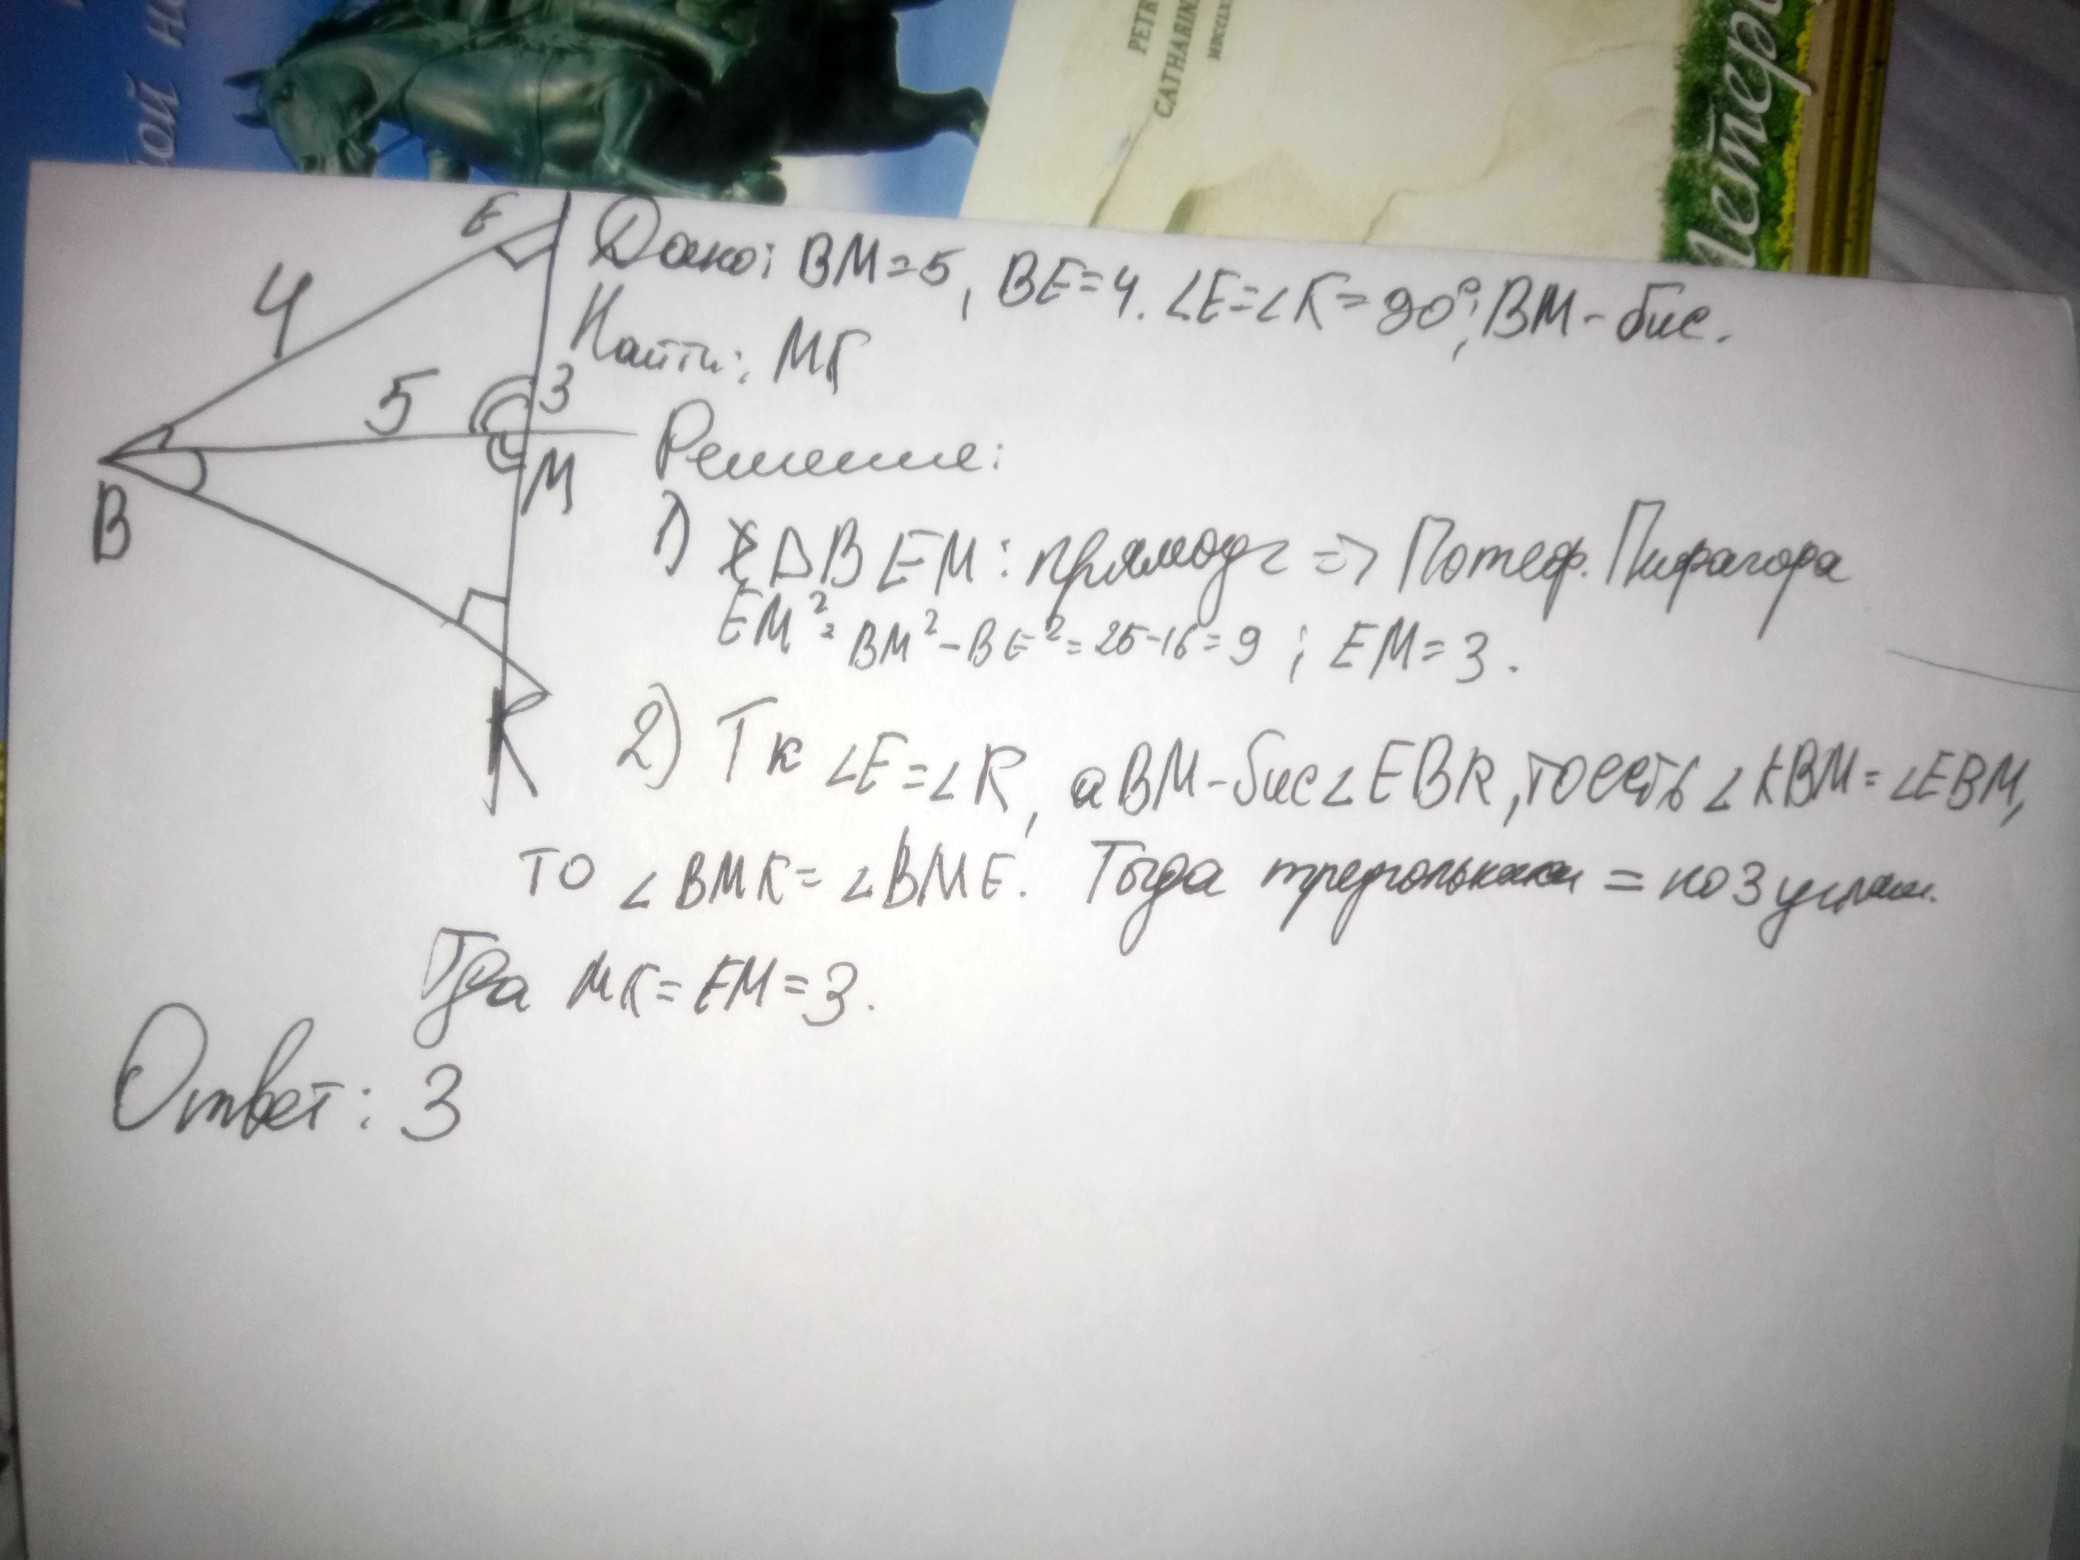 ой
PETR
CATHARIN
MDCCLX
Петер
E
4
5
3
M
B
K
Дано: BM=5, BE=4. ∠E=∠K=90°; BM-бис.
Найти: MK
Решение:
1) ΔBEM: прямоуг => По теор. Пифагора
EM²=BM²-BE²=25-16=9; EM=3.
2) Тк ∠E=∠K, а BM-бис∠EBK, то есть ∠KBM=∠EBM,
то ∠BMK=∠BME. Тогда треугольники = по 3 углам.
Тогда MK=EM=3.
Ответ: 3